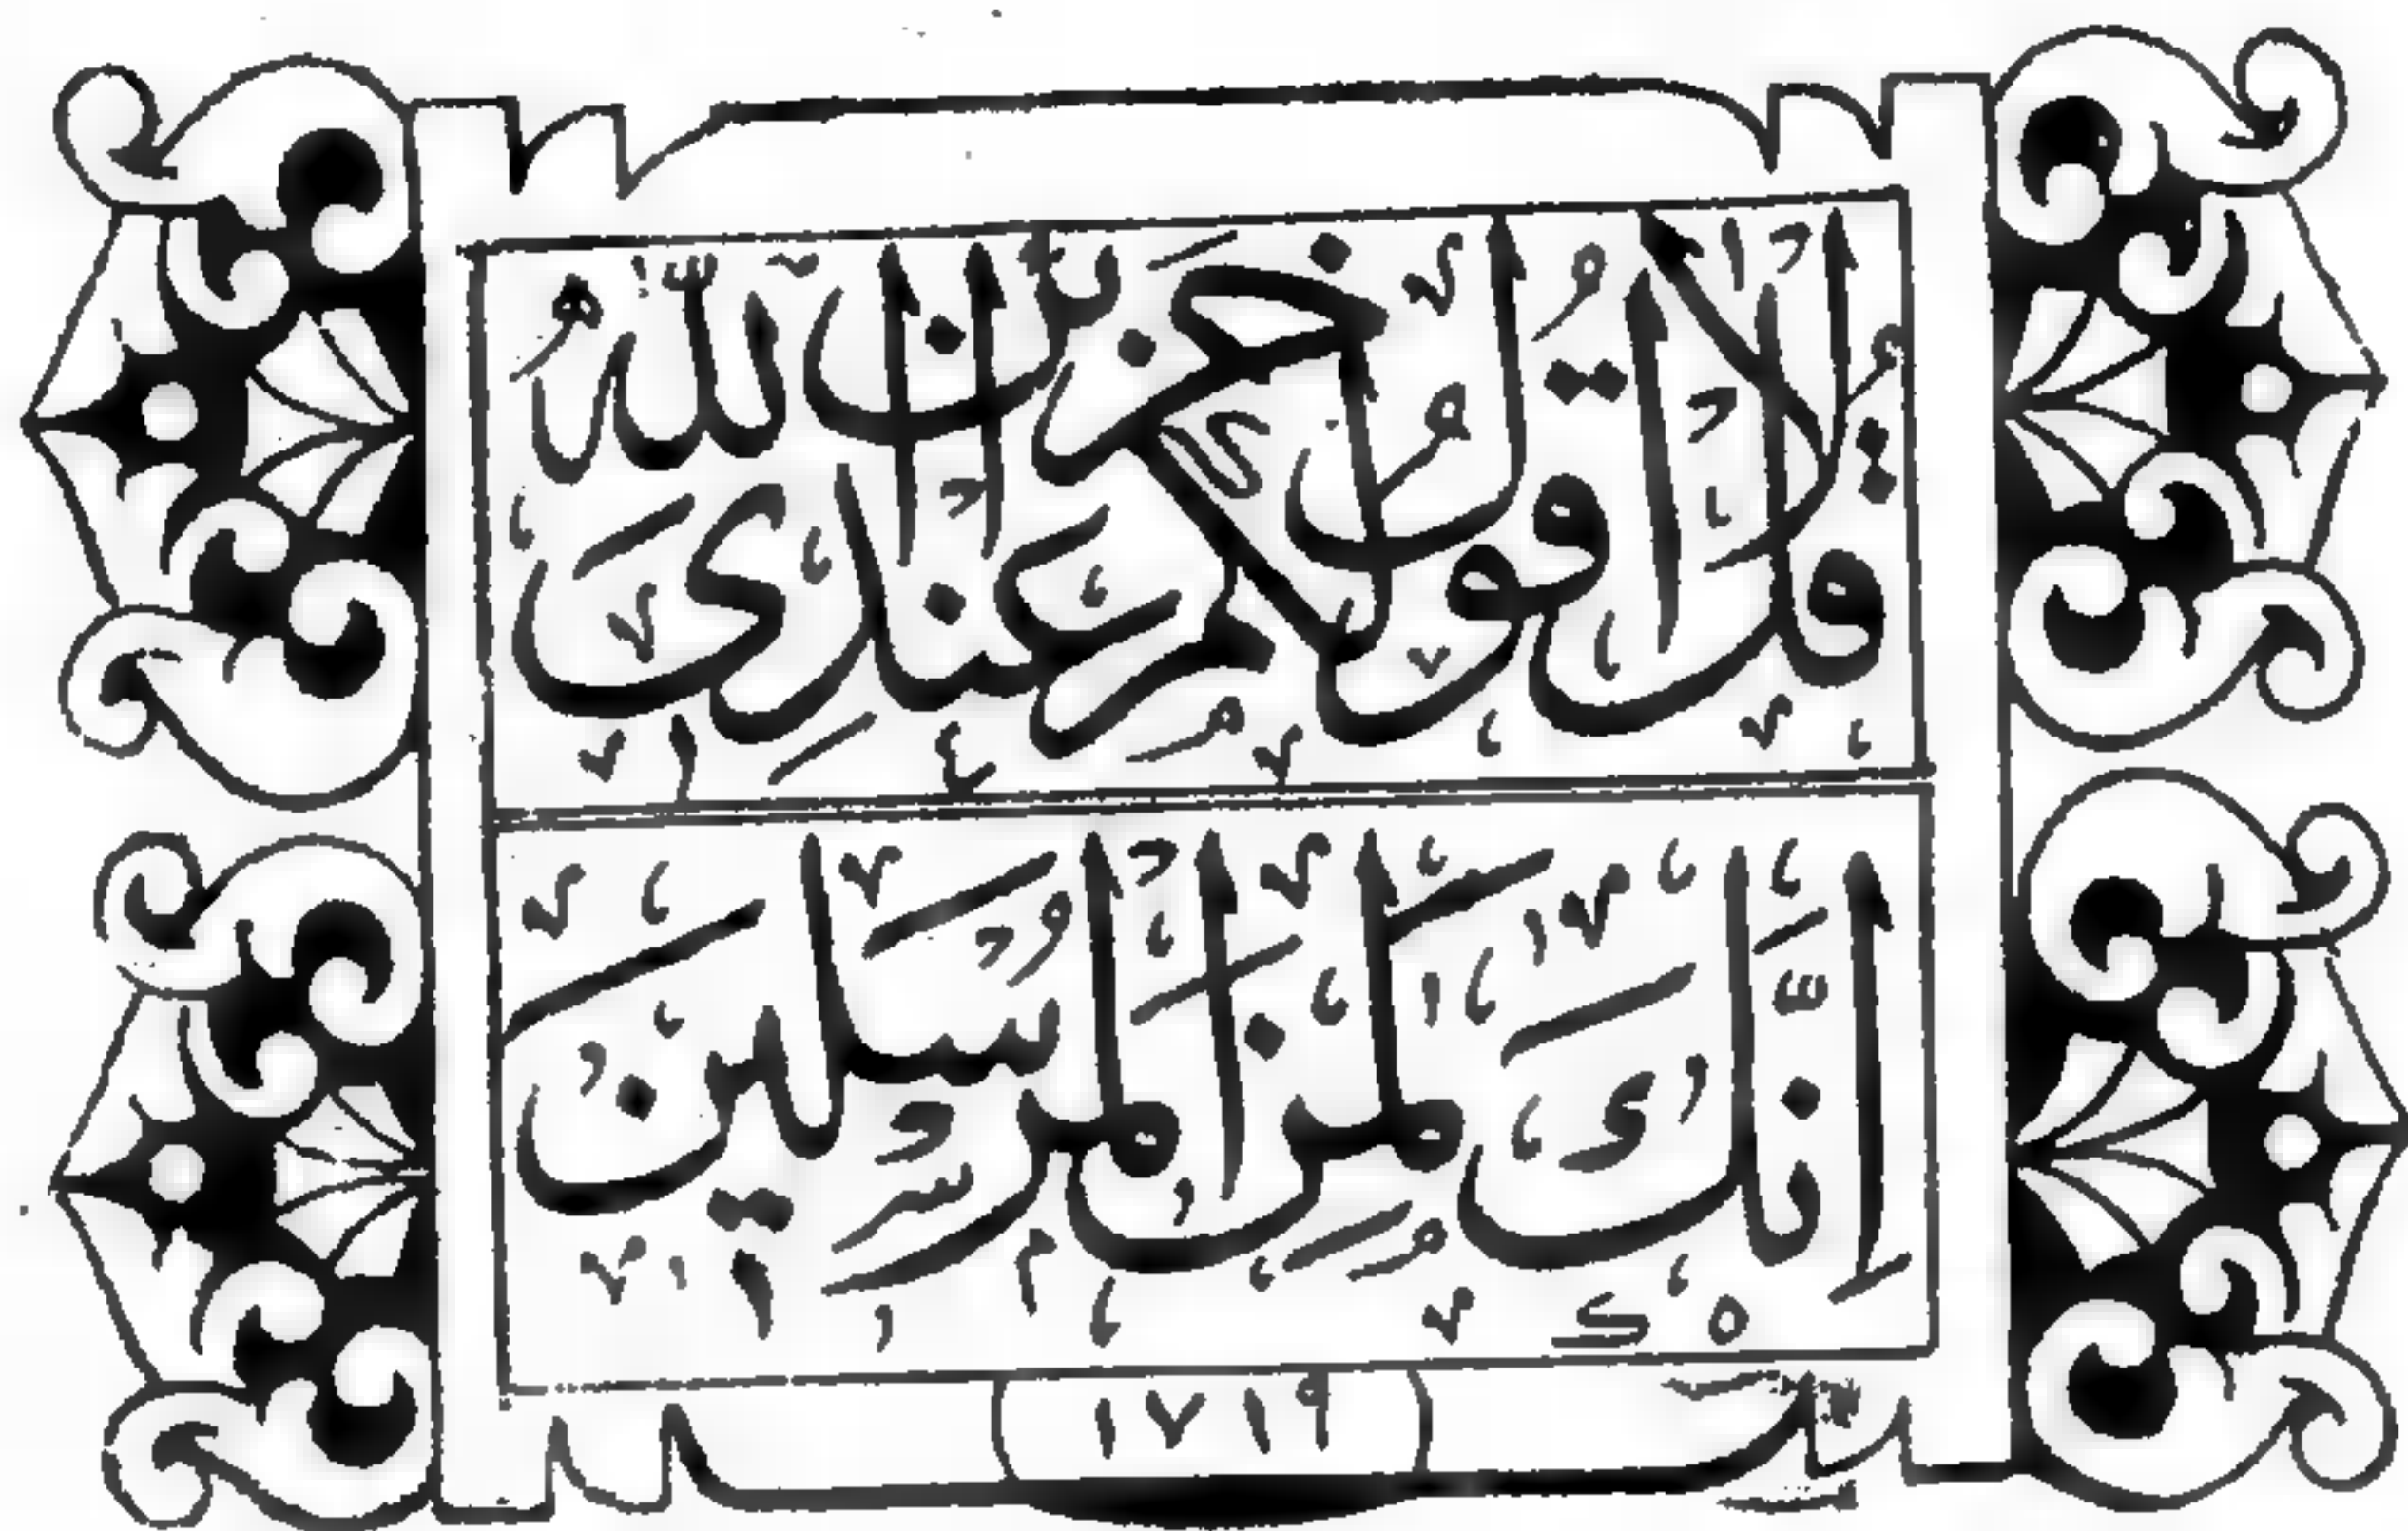 قُل لَّا أَقُولُ لَكُمْ عِندِي خَزَائِنُ اللَّهِ
إِنَّكَ لَمِنَ الْمُرْسَلِينَ
١٧١٩